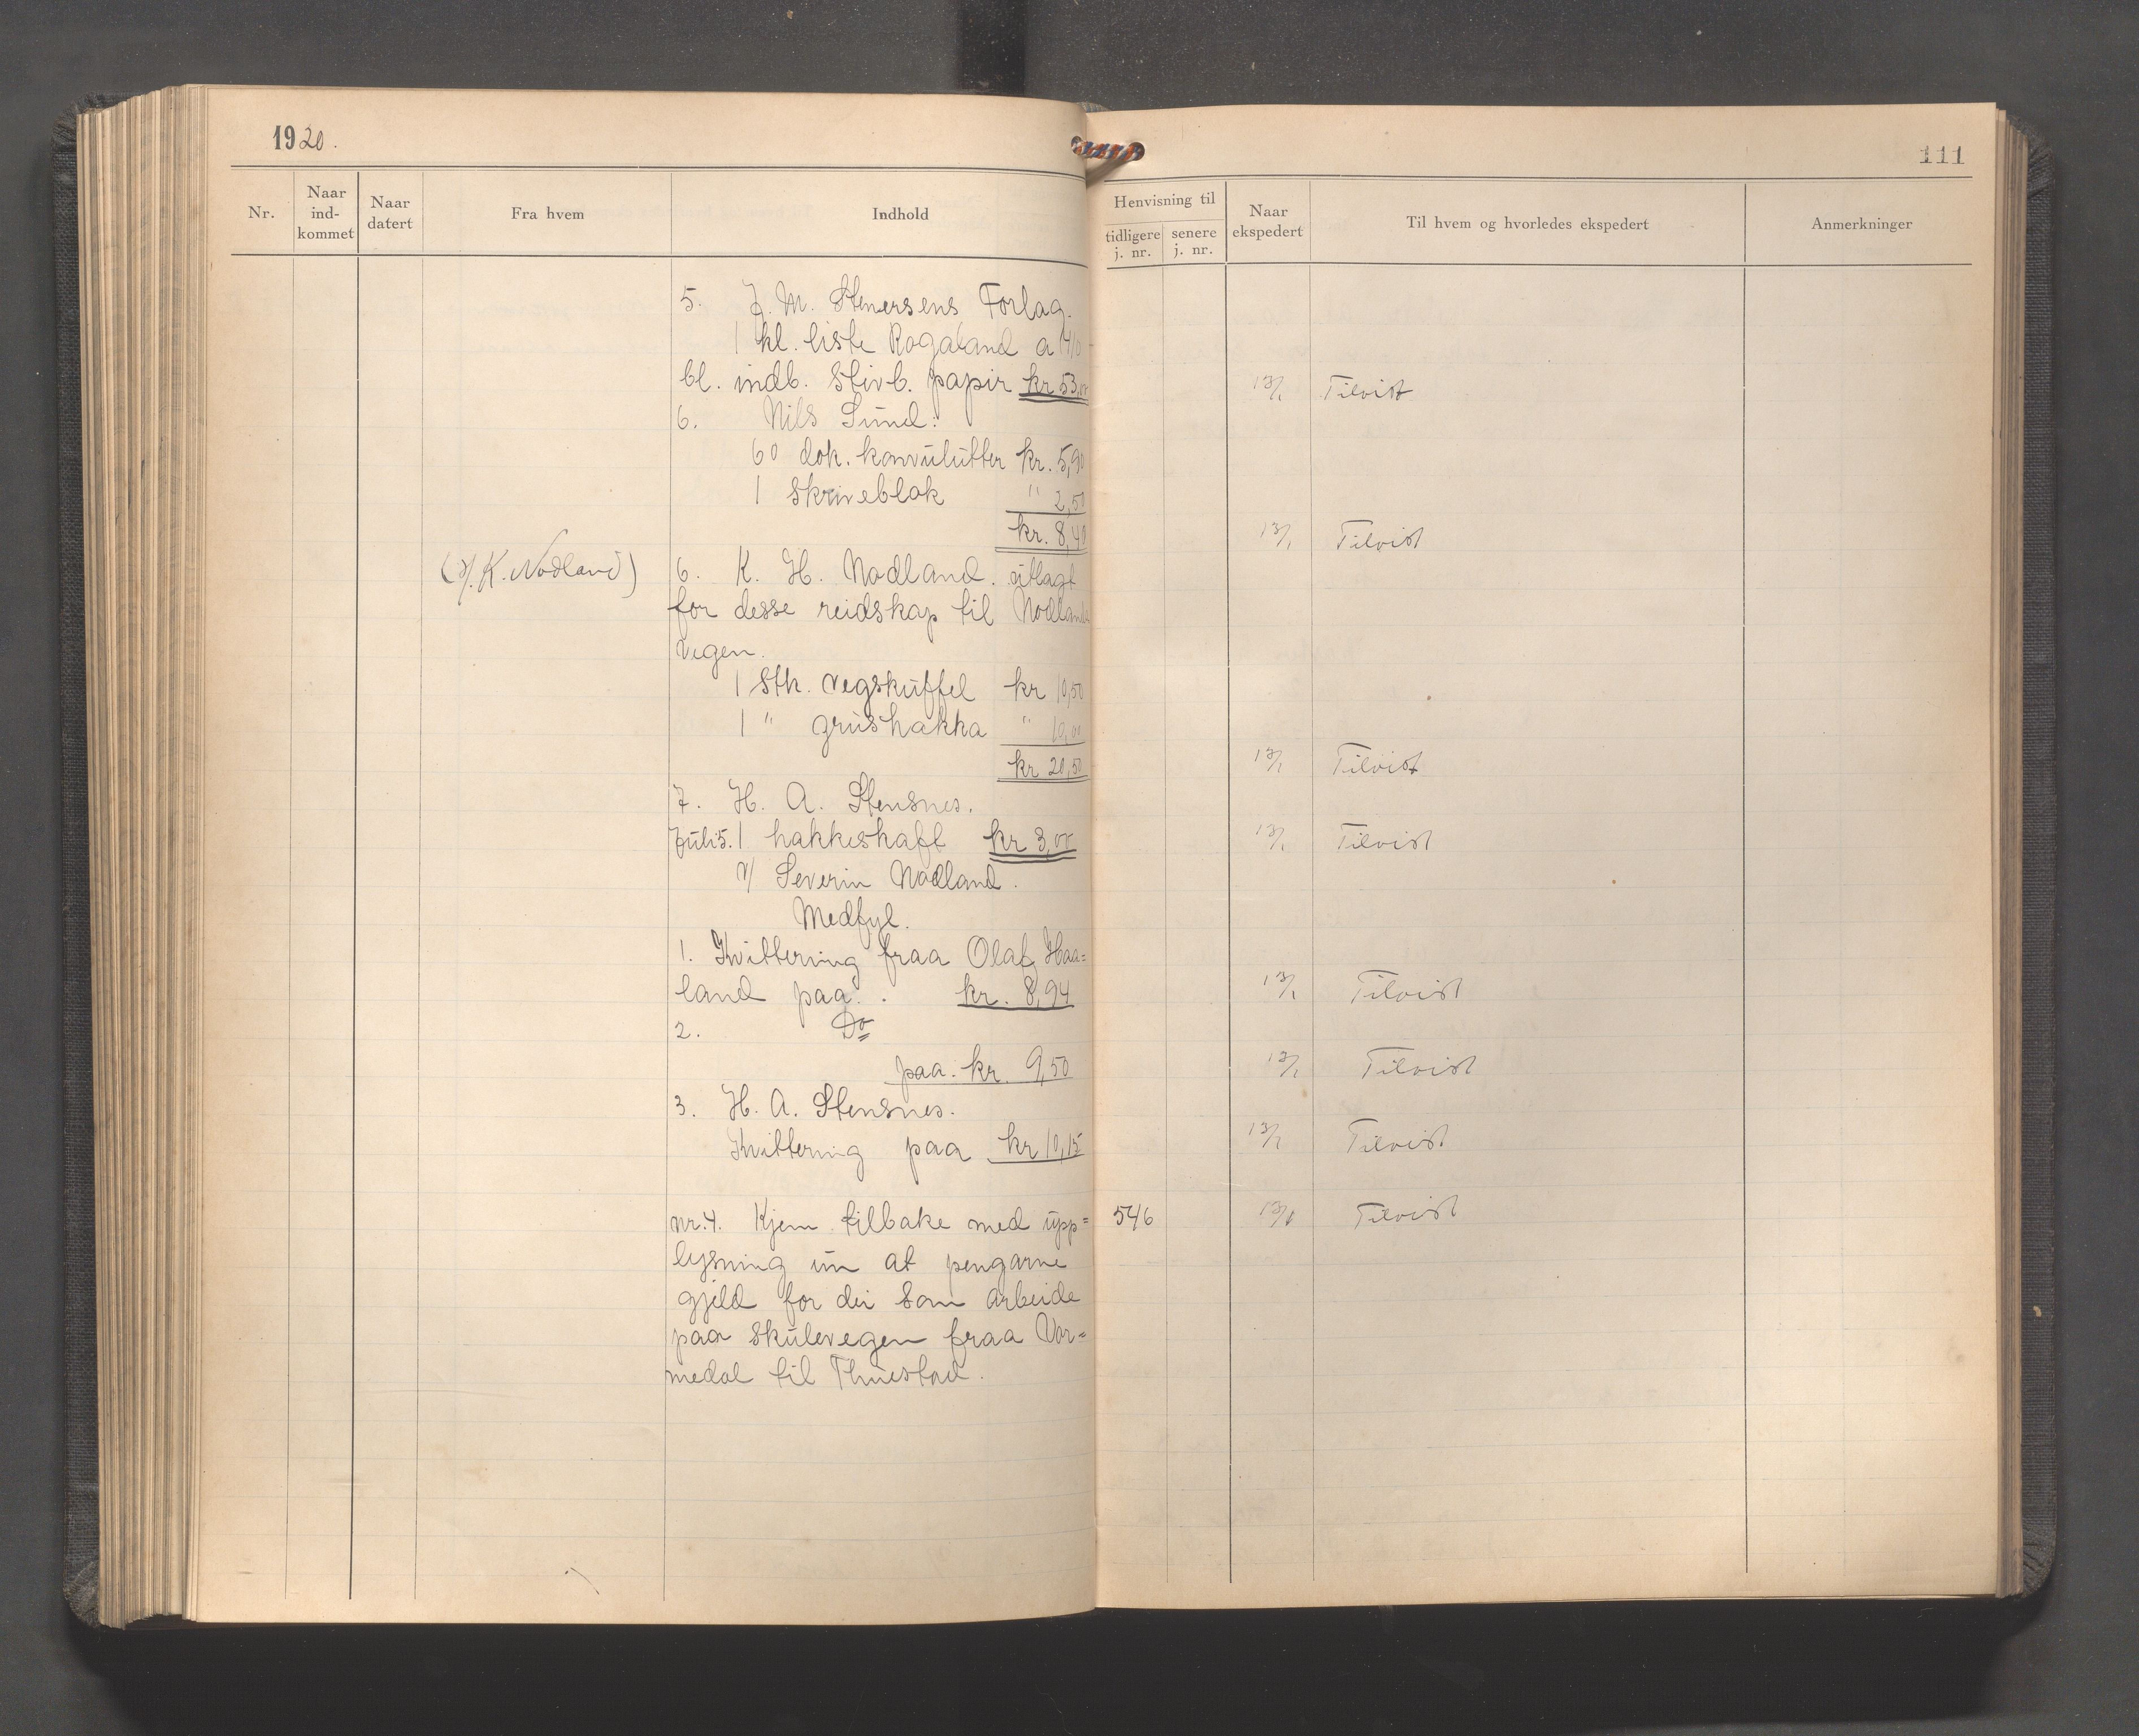 1920.
111
Nr.
Naar ind-kommet
Naar datert
Fra hvem
Indhold
Henvisning til
tidligere j. nr.
senere j. nr.
Naar ekspedert
Til hvem og hvorledes ekspedert
Anmerkninger
5. J. M. Stenersens Forlag.
1 kl. liste Rogaland a 410
bl. indb. stivb. papir kr 53,00
13/1 Tilvist
6. Nils Sund:
60 dok. konvulutter kr. 5,90
1 skriveblok " 2,50
kr. 8,40
13/1 Tilvist
(v/. K. Nodland)
6. K. H. Nodland. utlagt
for desse reidskap til Nodlands
vegen.
1 stk. vegskuffel kr 10,50
1 " grushakka " 10,00
kr 20,50
13/1 Tilvist
7. H. A. Stensnes.
Juli 5. 1 hakkeskaft kr 3,00
13/1 Tilvist
v/ Severin Nodland.
Medfyl.
1. Kvittering fraa Olaf Haa=
land paa. . kr. 8,94
13/1 Tilvist
2. Do
paa. kr. 9,50
13/1 Tilvist
3. H. A. Stensnes.
Kvittering paa kr 10,15
13/1 Tilvist
nr. 4. Kjem tilbake med upp=
546
13/1 Tilvist
lysning um at pengarne
gjeld for dei som arbeide
paa skulevegen fraa Vor=
medal til Thuestad.